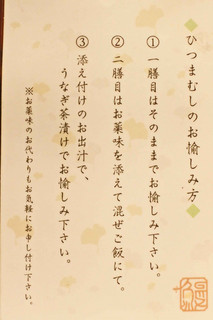 ひつまむしのお愉しみ方
① 一膳目はそのままでお愉しみ下さい。
② 二膳目はお薬味を添えて混ぜご飯にて。
③ 添え付けのお出汁で、
うなぎ茶漬けでお愉しみ下さい。
※お薬味のお代わりもお気軽にお申し付け下さい。